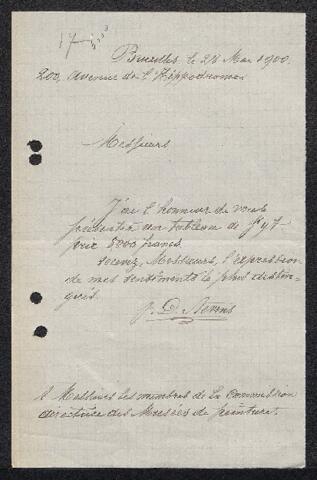 Bruxelles, le 28 Mai 1900.
200, Avenue de l'Hippodrome
Messieurs
J'ai l'honneur de vous
présenter un tableau de
prix 5000 francs.
recevez, Messieurs, l'expression
de mes sentiments le plus distin-
gués.
Messieurs les membres de la Commission
directrice des Musées de peinture.